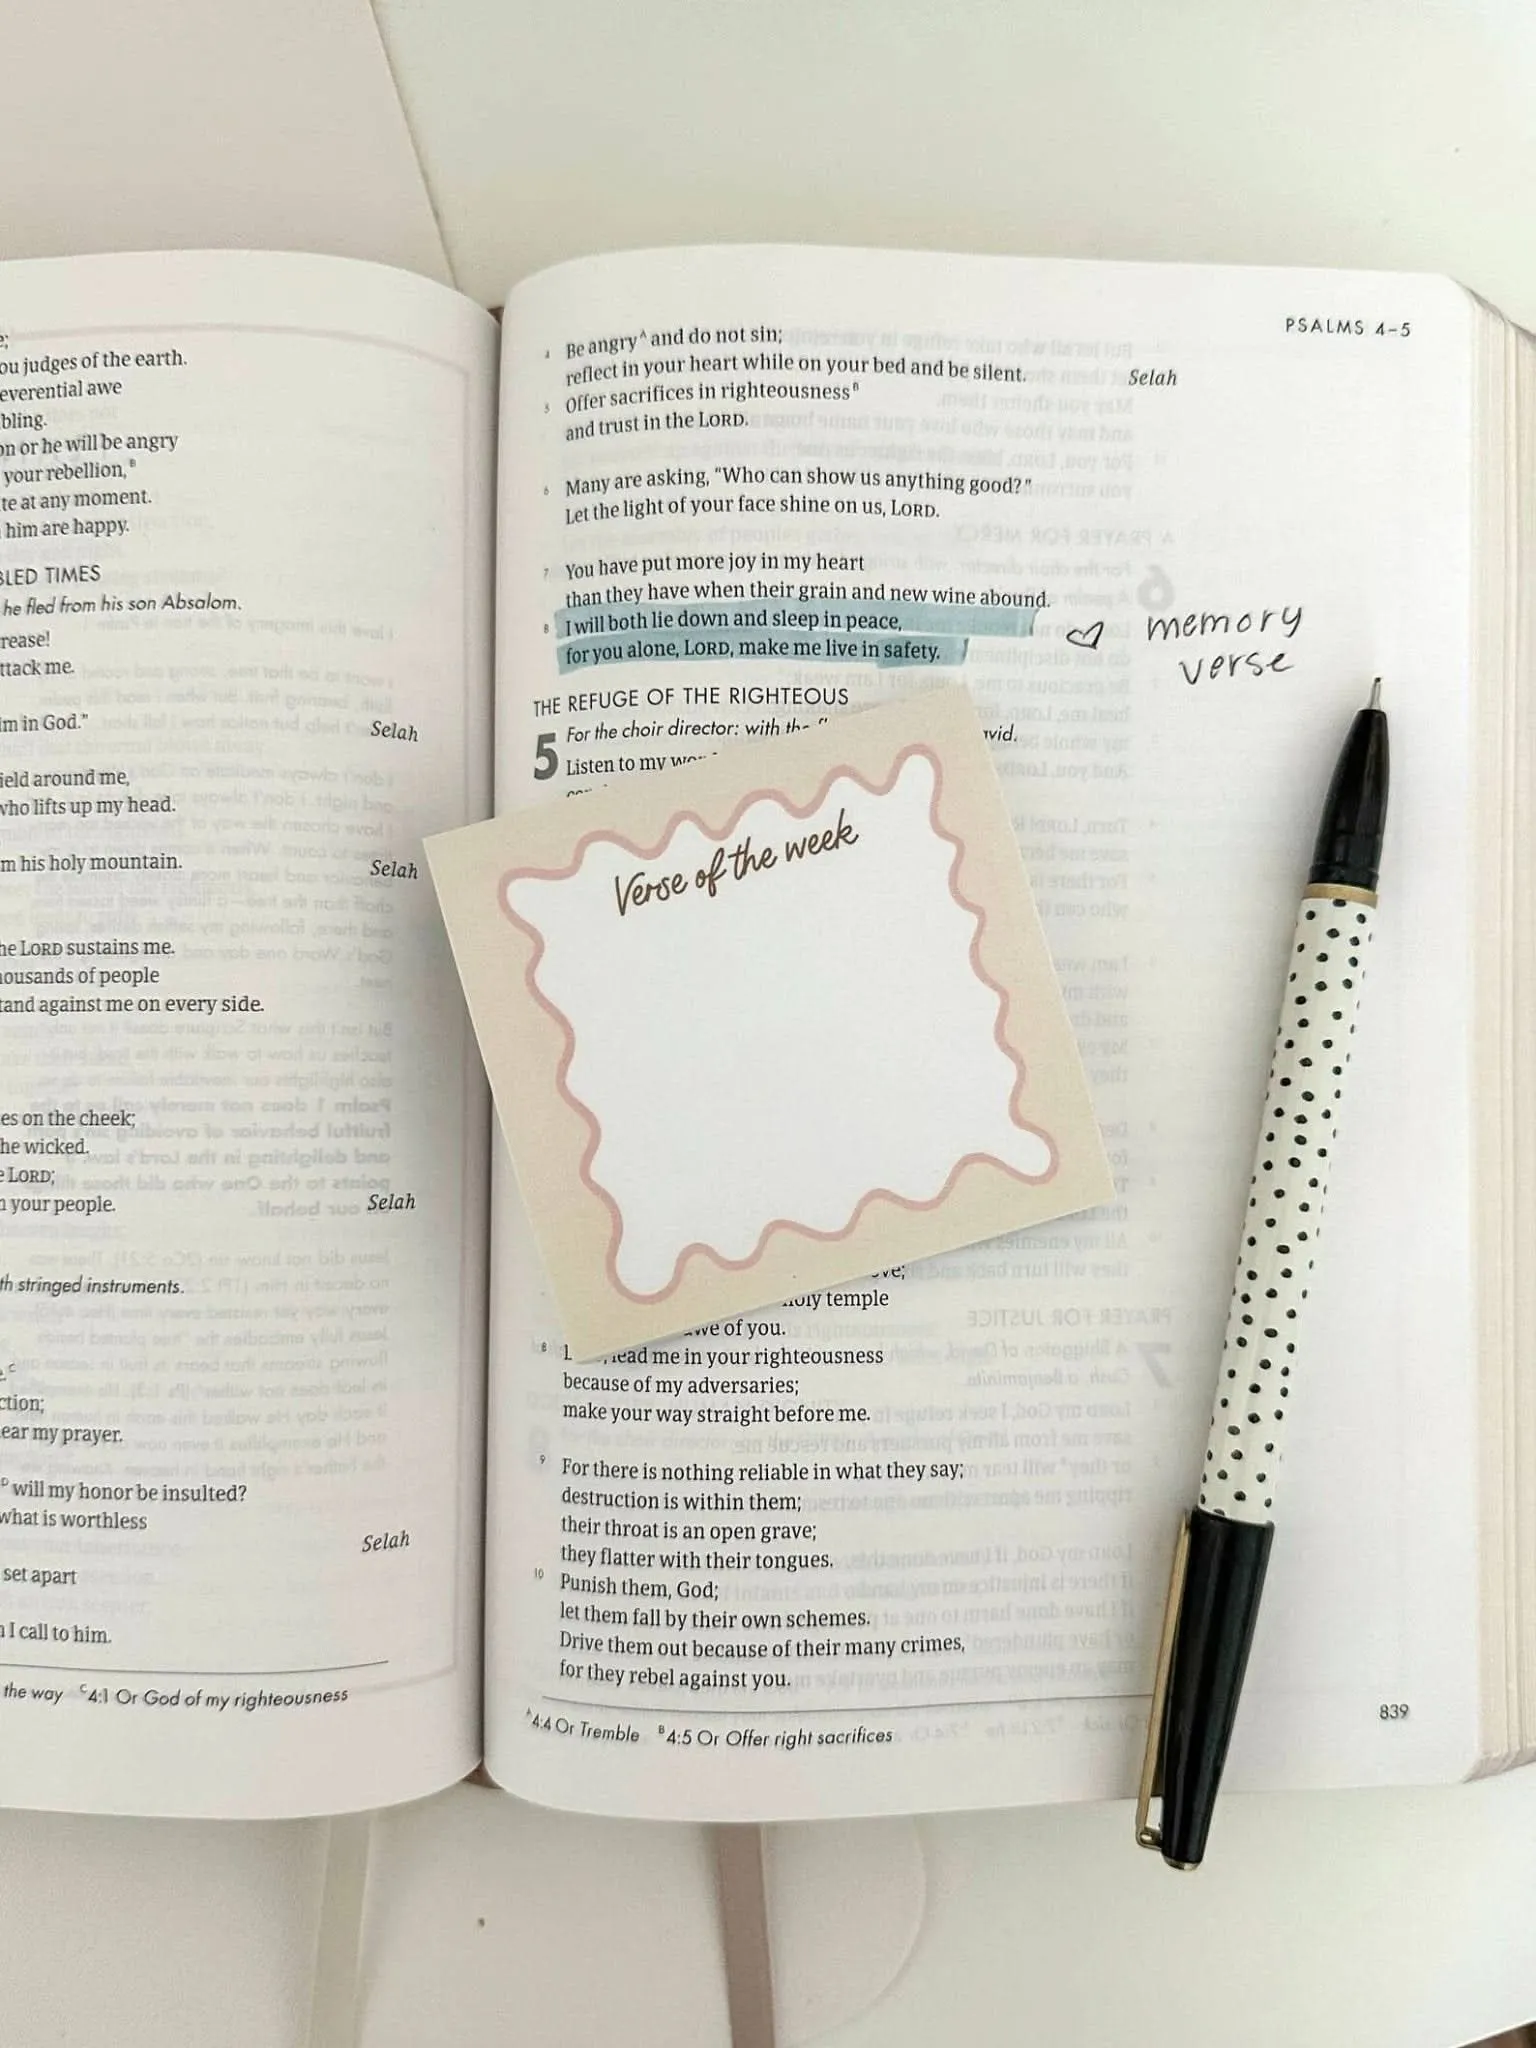 e;
ou judges of the earth.
everential awe
bling.
on or he will be angry
your rebellion,ᴮ
te at any moment.
him are happy.
BLED TIMES
he fled from his son Absalom.
rease!
ttack me.
im in God." Selah
ield around me,
who lifts up my head.
m his holy mountain. Selah
he LORD sustains me.
housands of people
tand against me on every side.
es on the cheek;
he wicked.
e LORD;
n your people. Selah
th stringed instruments.
e.ᶜ
ction;
ear my prayer.
ᴰ will my honor be insulted?
what is worthless
Selah
set apart
I call to him.
the way ᶜ4:1 Or God of my righteousness
PSALMS 4–5
4 Be angryᴬ and do not sin;
reflect in your heart while on your bed and be silent. Selah
5 Offer sacrifices in righteousnessᴮ
and trust in the LORD.
6 Many are asking, "Who can show us anything good?"
Let the light of your face shine on us, LORD.
7 You have put more joy in my heart
than they have when their grain and new wine abound.
8 I will both lie down and sleep in peace,
for you alone, LORD, make me live in safety.
memory
verse
THE REFUGE OF THE RIGHTEOUS
5 For the choir director: with the avid.
Listen to my
Verse of the week
temple
awe of you.
8 lead me in your righteousness
because of my adversaries;
make your way straight before me.
9 For there is nothing reliable in what they say;
destruction is within them;
their throat is an open grave;
they flatter with their tongues.
10 Punish them, God;
let them fall by their own schemes.
Drive them out because of their many crimes,
for they rebel against you.
ᴬ4:4 Or Tremble ᴮ4:5 Or Offer right sacrifices
839